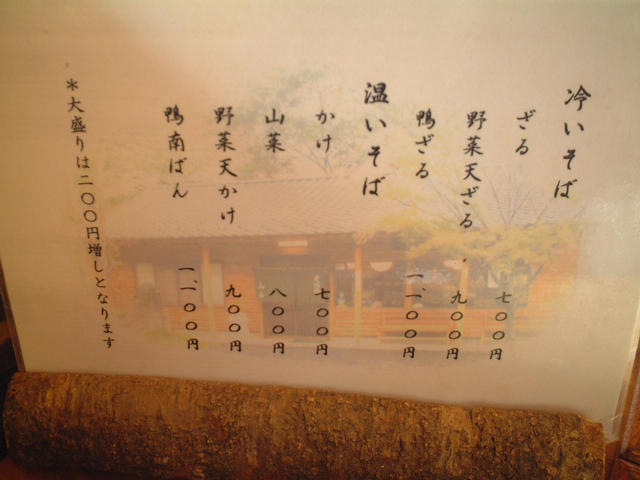 冷いそば
ざる 七〇〇円
野菜天ざる 九〇〇円
鴨ざる 一、一〇〇円
温いそば
かけ 七〇〇円
山菜 八〇〇円
野菜天かけ 九〇〇円
鴨南ばん 一、一〇〇円
＊大盛りは二〇〇円増しとなります